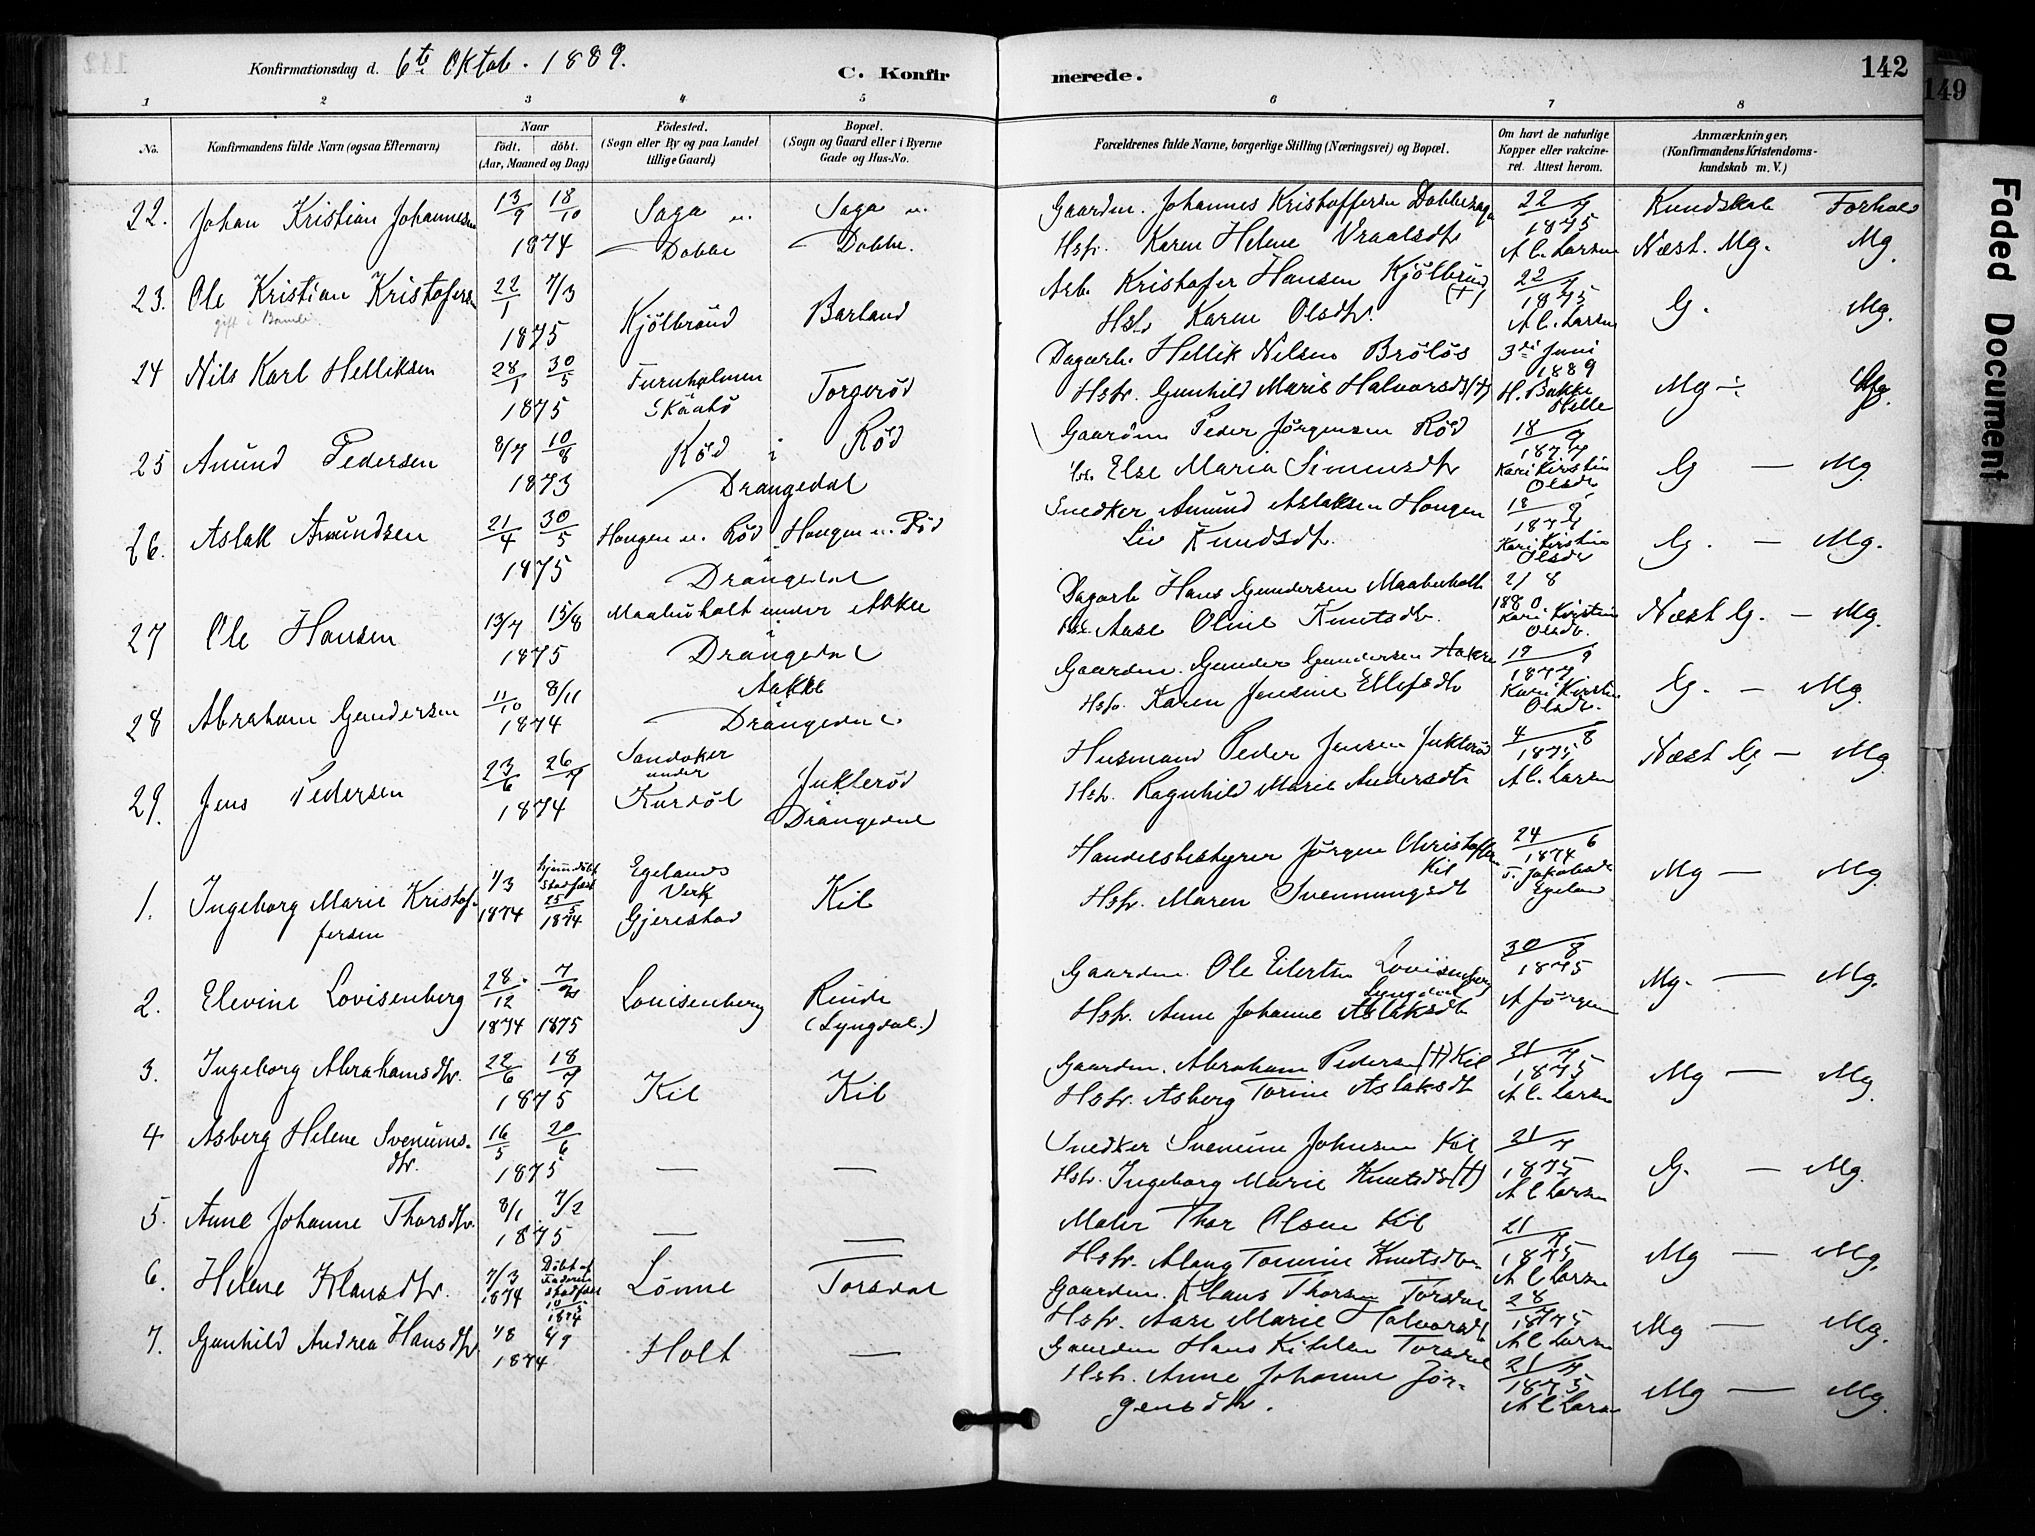 Konfirmationsdag d. 6te Oktob. 1889.
C. Konfirmerede.
142
149
Faded Document
1 2 3 4 5 6 7 8
No.
Konfirmandens fulde Navn (ogsaa Efternavn)
Naar
födt. döbt.
(Aar, Maaned og Dag)
Födested.
(Sogn eller By og paa Landet
tillige Gaard)
Bopæl.
(Sogn og Gaard eller i Byerne
Gade og Hus-No.
Forældrenes fulde Navne, borgerlige Stilling (Næringsvei) og Bopæl.
Om havt de naturlige
Kopper eller vakcine-
ret. Attest herom.
Anmærkninger.
(Konfirmandens Kristendoms-
kundskab m. V.)
Kundskab Forhold
22. Johan Kristian Johannesen 13/9 18/10 1874 Saga u. Dobbe Saga u. Dobbe.
Gaardm. Johannes Kristoffersen Dobbesaga
Hstr. Karen Helene Vraalsdtr 22/7 1875 A C. Larsen Næst. Mg. Mg.
23. Ole Kristian Kristofers. 22/1 7/3 1875 Kjölbrönd Barland
gift i Bamble
Arb. Kristofer Hansen Kjölbrönd (+)
Hstr Karen Olsdtr. 22/7 1875 A C. Larsen G. Mg.
24 Nils Karl Helliksen 28/1 30/5 1875 Furuholmen Skåatö Torgeröd
Dagarb. Hellik Nilsen Brölös
Hstr. Gunhild Marie Halvorsd (+) 3die Juni 1889 H. Bakke Helle Mg ÷ Mg.
25 Amund Pedersen 8/7 10/8 1873 Röd i Röd
Drangedal
Gaardm Peder Jörgensen Röd
Hs. Else Maria Simensdtr 18/9 1877 Kari Kirstin Olsdr G — Mg
26. Aslak Amundsen 21/4 30/5 1875 Haugen u. Röd Haugen u. Röd
i Drangedal
Snedker Amund Aslaksen Haugen
Liv Knudsdtr. 18/9 1877 Kari Kirstin Olsdr G. — Mg.
27 Ole Hansen 13/7 15/8 1875 under Aakre
i Drangedal
Dagarb Hans Gundersen
Aase Oline Knutsdtr. 21 8 1880 Kari Kirstin Olsdr. Næst G. — Mg.
28 Abraham Gundersen 11/10 8/11 1874 Aakre
Drangedal
Gaardm. Gunder Gundersen Aakre
Hstr. Karen Jensine Ellefsdtr 19/9 1877 Kari Kirstin Olsdr. G. — Mg.
29. Jens Pedersen 23/6 26/7 1874 Sandaker under Kurdöl Jukteröd
Drangedal
Husmand Peder Jensen Jukteröd
Hstr. Ragnhild Marie Andersdtr 4/8 1875 A C. Larsen Næst G — Mg.
1. Ingeborg Marie Kristof-
fersen 1/3 1874 hjemmedöbt Stadfæst 25/5 1874 Egelands Verk Gjerestad Kil
Handelsbestyrer Jörgen Christoffersen Kil
Hstr. Maren Svenningsdt 24/6 1874 T. Jakobsen Egeland Mg — Mg.
2. Elevine Lovisenberg 28/12 1874 7/2 1875 Louisenberg Rinde
(Lyngdal.)
Gaardm. Ole Eilertsen Lovisenberg
Lyngdal
Hstr. Anne Johanne Aslaksdt 30/8 1875 A Jörgen Mg. — Mg.
3. Ingeborg Abrahamsdtr. 22/6 18/7 1875 Kil Kil
Gaardm. Abraham Pedersen (+) Kil
Hstr. Asberg Torine Aslaksdt 21/7 1875 A C. Larsen Mg — Mg.
4 Asberg Helene Svenums-
dtr. 16/5 20/6 1875 — —
Snedker Svenum Johnsen Kil
Hstr. Ingeborg Marie Knutsd (+) 21/7 1875 A C Larsen G. — Mg.
5. Anne Johanne Thorsdtr. 8/1 7/2 1875 — —
Maler Thor Olsen Kil
Hstr. Alang Tomine Knutsdtr 21/7 1875 A C Larsen Mg — Mg.
6. Helene Klausdtr. 7/3 1874 Döbt af Faderen stadfæst 10/5 1874 Lönne Torsdal
Gaardm. Klaus Thorsen Torsdal
Hstr. Aase Marie Halvorsdt 28/7 1875 A C Larsen Mg — Mg.
7. Gunhild Andrea Hansdtr 1/8 6/9 1874 Holt —
Gaardm Hans Kittelsen Torsdal
Hstr. Anne Johanne Jör-
gensdtr. 21/7 1875 A C Larsen Mg — Mg.